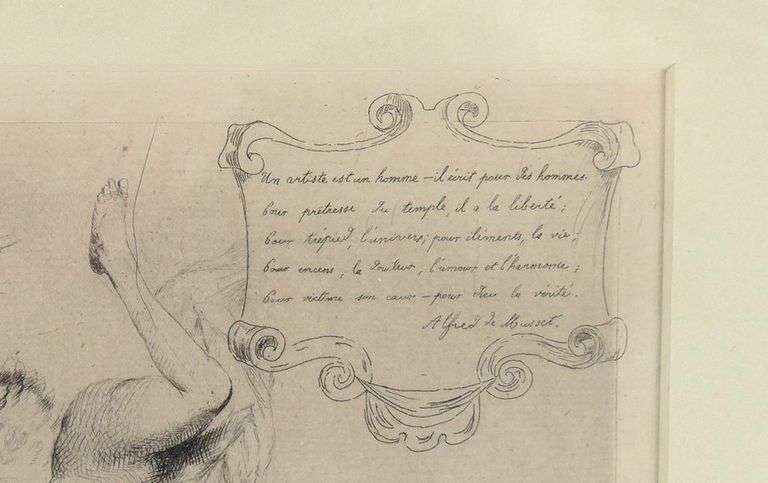 Un artiste est un homme – il écrit pour des hommes.
Pour prêtresse du temple, il a la liberté;
Pour trépied, l'univers; pour éléments, la vie;
Pour encens, la douleur, l'amour et l'harmonie;
Pour victime son cœur – pour dieu la vérité.
Alfred de Musset.